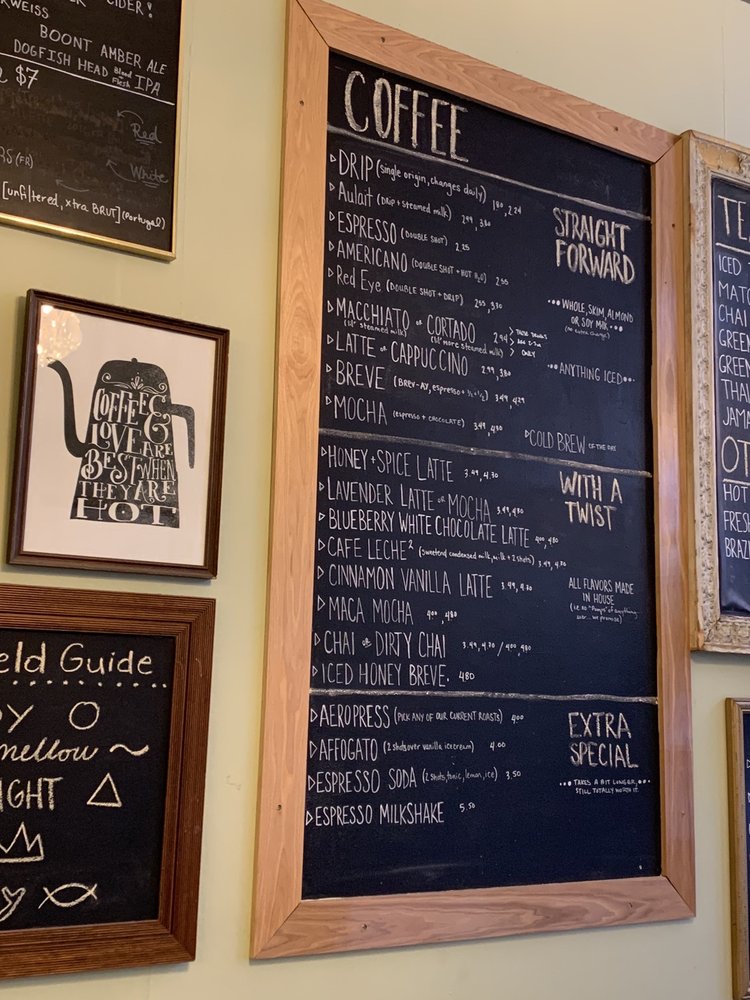 CIDER!
RWEISS
BOONT AMBER ALE
DOGFISH HEAD Blood Flesh IPA
$7
Red
RS (FR)
White
[unfiltered, xtra BRUT] (Portugal)
COFFEE & LOVE ARE BEST WHEN THEY ARE HOT
eld Guide
mellow ~
IGHT △
COFFEE
▷DRIP (single origin, changes daily) 1.80, 2.24
▷Aulait (DRIP + steamed milk) 2.99, 3.80
▷ESPRESSO (DOUBLE SHOT) 2.25
▷AMERICANO (DOUBLE SHOT + HOT H2O) 2.55
▷Red Eye (DOUBLE SHOT + DRIP) 2.55, 3.30
▷MACCHIATO or CORTADO 2.94
(lil' steamed milk) (lil' more steamed milk)
▷LATTE or CAPPUCCINO 2.99, 3.80
▷BREVE (BREV-AY, espresso + ½ + ½) 3.49, 4.29
▷MOCHA (espresso + CHOCOLATE) 3.49, 4.30
STRAIGHT
FORWARD
WHOLE, SKIM, ALMOND
OR SOY MILK
(no extra charge)
ANYTHING ICED
▷COLD BREW OF THE DAY
▷HONEY + SPICE LATTE 3.49, 4.30
▷LAVENDER LATTE or MOCHA 3.49, 4.30
▷BLUEBERRY WHITE CHOCOLATE LATTE 4.00, 4.80
▷CAFE LECHE² (sweetend condensed milk, milk + 2 shots) 3.49, 4.30
▷CINNAMON VANILLA LATTE 3.49, 4.30
▷MACA MOCHA 4.00, 4.80
▷CHAI or DIRTY CHAI 3.49, 4.30 / 4.00, 4.80
▷ICED HONEY BREVE. 4.80
WITH A
TWIST
ALL FLAVORS MADE
IN HOUSE
(i.e. no "Pumps" of anything
ever... we promise)
▷AEROPRESS (PICK ANY OF OUR CURRENT ROASTS) 4.00
▷AFFOGATO (2 shots over vanilla ice cream) 4.00
▷ESPRESSO SODA (2 shots, tonic, lemon, ice) 3.50
▷ESPRESSO MILKSHAKE 5.50
EXTRA
SPECIAL
TAKES A BIT LONGER,
STILL TOTALLY WORTH IT.
TE
ICED
MATC
CHAI
GREEN
GREE
THA
JAMA
OT
HOT
FRES
BRAZ